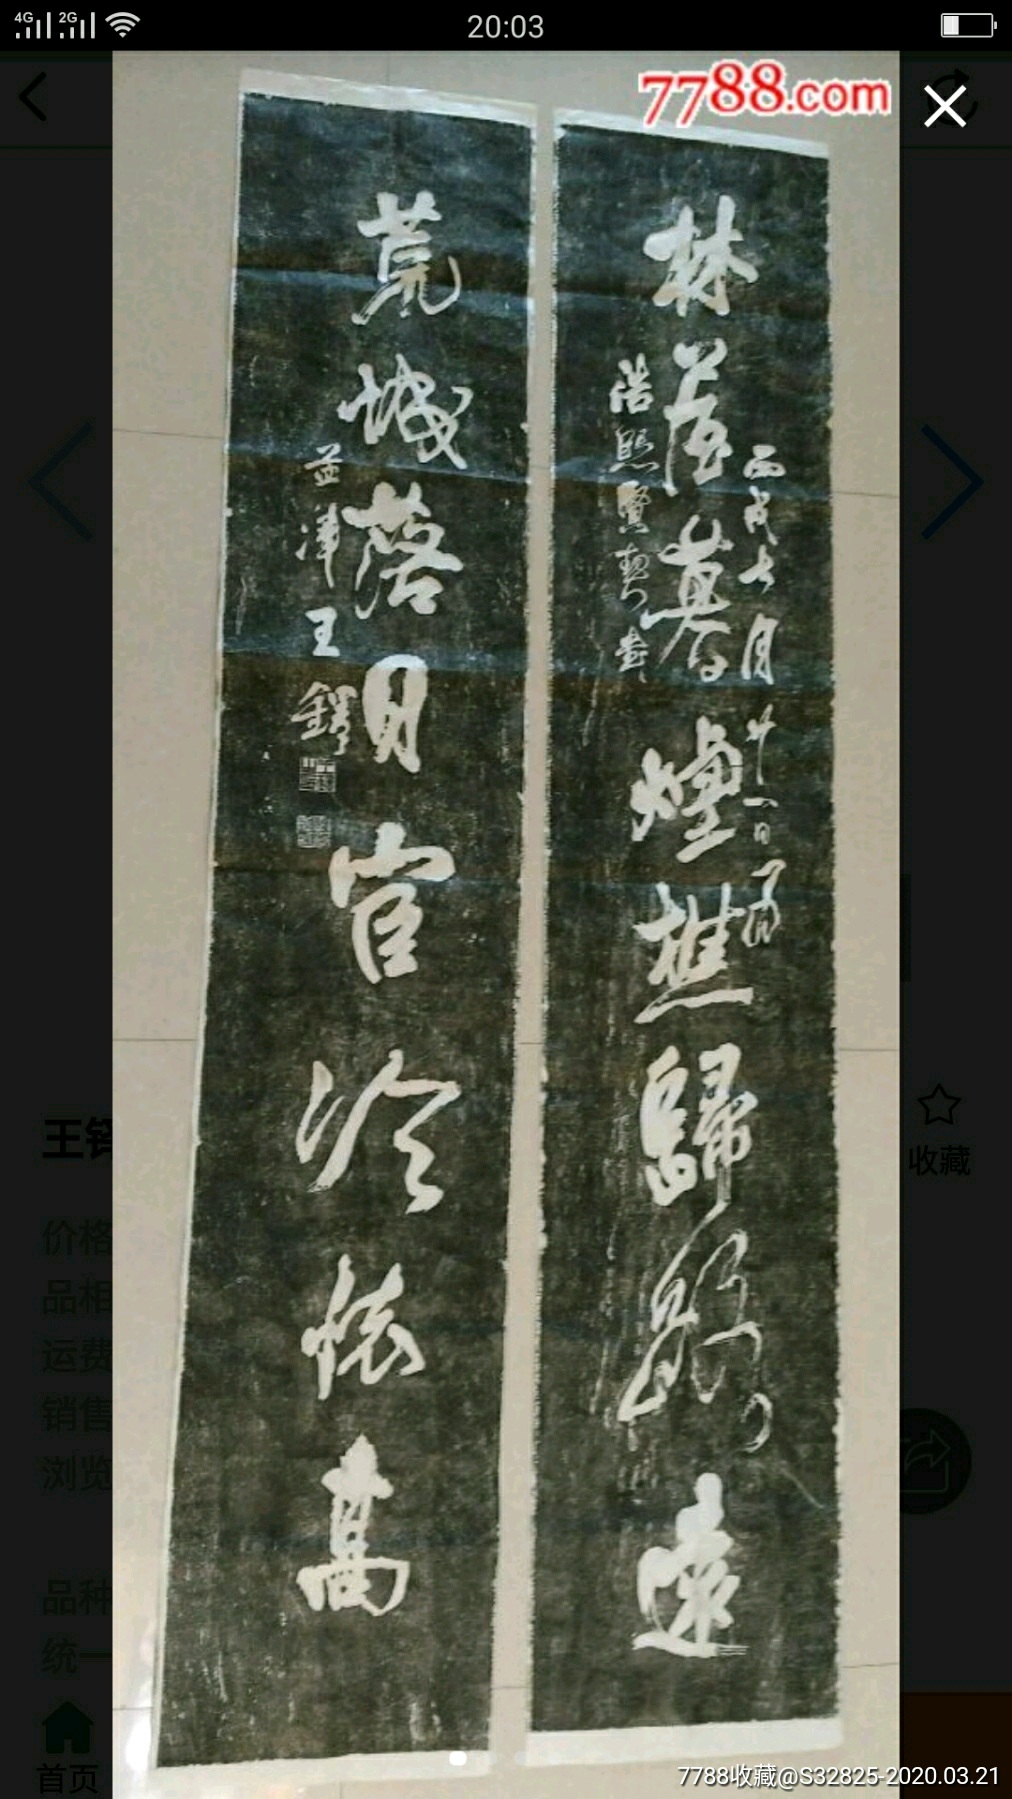 4G 2G 20:03
7788.com
林屋暮煙樵歸路遠
丙戌七月廿一日為
浩熙賢契書
荒城落月官冷怯高
孟津王鐸
王铎
收藏
价格
品相
运费
销售
浏览
品种
统一
首页
7788收藏@S32825-2020.03.21